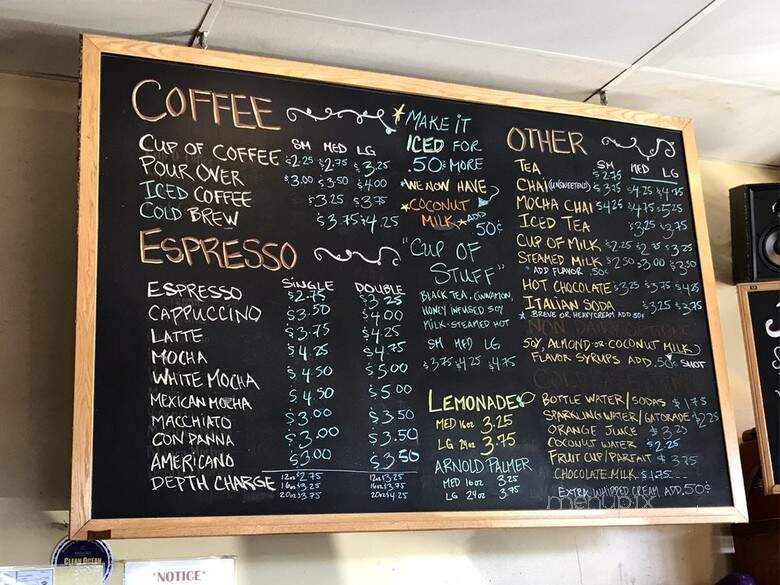 COFFEE
SM MED LG
CUP OF COFFEE $2.25 $2.75 $3.25
POUR OVER $3.00 $3.50 $4.00
ICED COFFEE $3.25 $3.75
COLD BREW $3.75 $4.25
ESPRESSO
SINGLE DOUBLE
ESPRESSO $2.75 $3.25
CAPPUCCINO $3.50 $4.00
LATTE $3.75 $4.25
MOCHA $4.25 $4.75
WHITE MOCHA $4.50 $5.00
MEXICAN MOCHA $4.50 $5.00
MACCHIATO $3.00 $3.50
CON PANNA $3.00 $3.50
AMERICANO $3.00 $3.50
DEPTH CHARGE 12oz $2.75 12oz $3.25
16oz $3.25 16oz $3.75
20oz $3.75 20oz $4.25
MAKE IT
ICED FOR
.50¢ MORE
WE NOW HAVE
COCONUT
MILK ADD
50¢
"CUP OF
STUFF"
BLACK TEA, CINNAMON,
HONEY INFUSED SOY
MILK-STEAMED HOT
SM MED LG
$3.75 $4.25 $4.75
LEMONADE
MED 16oz 3.25
LG 24oz 3.75
ARNOLD PALMER
MED 16oz 3.25
LG 24oz 3.75
OTHER
SM MED LG
TEA $2.75
CHAI (UNSWEETENED) $3.75 $4.25 $4.75
MOCHA CHAI $4.25 $4.75 $5.25
ICED TEA $3.25 $3.75
CUP OF MILK $2.25 $2.75 $3.25
STEAMED MILK $2.50 $3.00 $3.50
* ADD FLAVOR .50¢
HOT CHOCOLATE $3.25 $3.75 $4.25
ITALIAN SODA $3.25 $3.75
* BREVE OR HEAVY CREAM ADD 50¢
NON DAIRY OPTIONS
SOY, ALMOND OR COCONUT MILK
FLAVOR SYRUPS ADD .50¢ SHOT
BOTTLE WATER/SODAS $1.75
SPARKLING WATER/GATORADE $2.25
ORANGE JUICE $3.25
COCONUT WATER $2.25
FRUIT CUP/PARFAIT $3.75
CHOCOLATE MILK $1.75
EXTRA WHIPPED CREAM ADD .50¢
menupix
CLEAN OCEAN
"NOTICE"